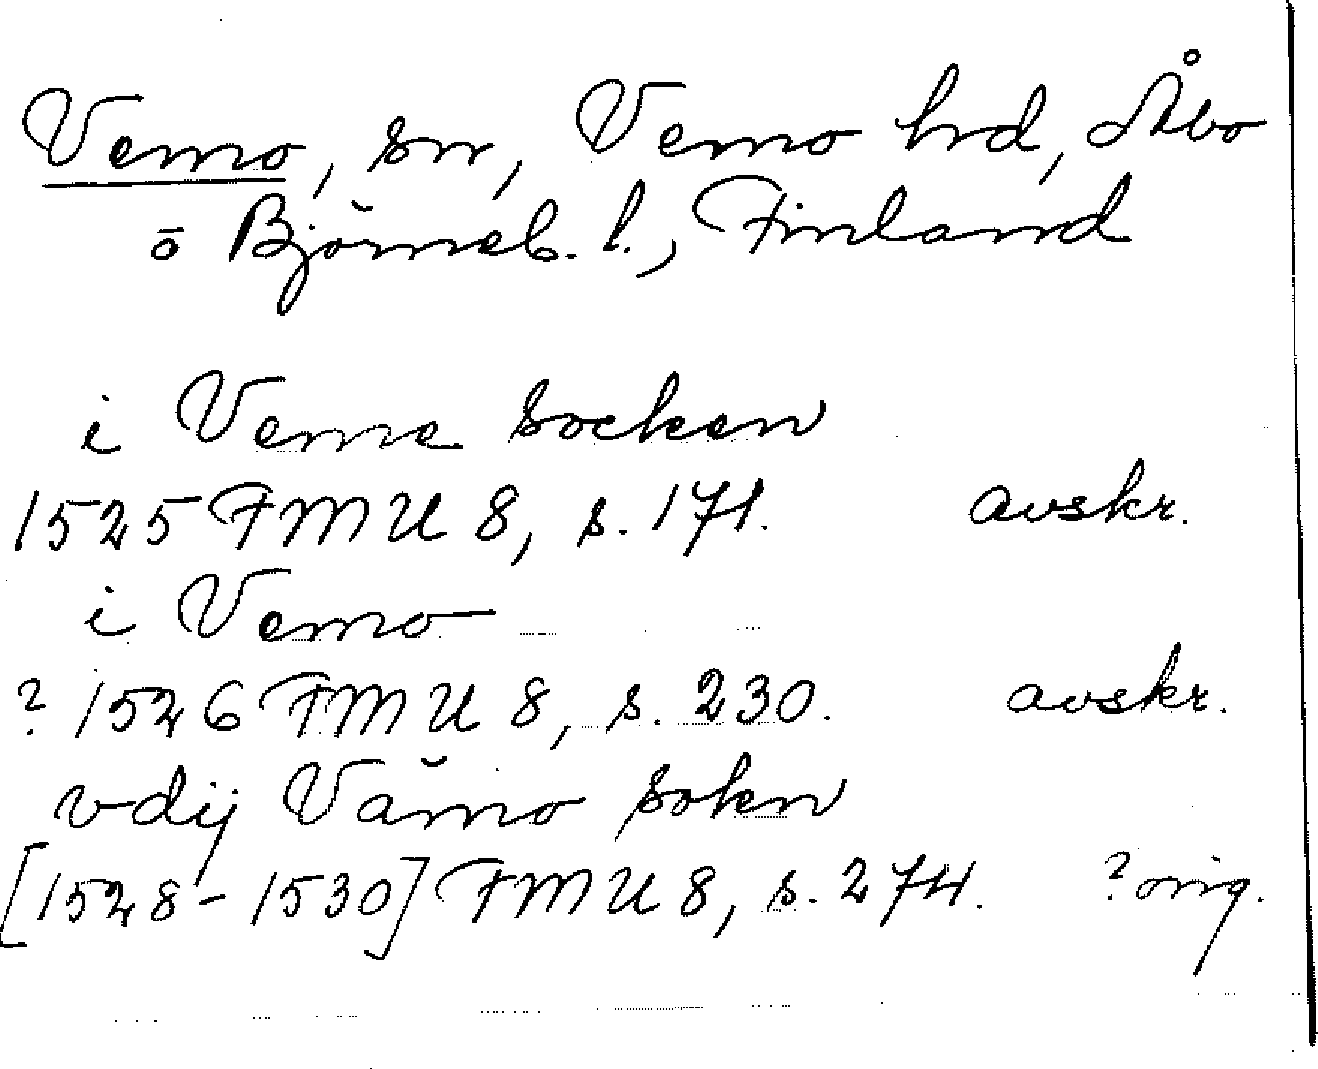 Vemo, sn, Vemo hrd, Åbo
o Björneb. l., Finland
i Veme socken
1525 FMU 8, s. 171. avskr.
i Vemo
? 1526 FMU 8, s. 230. avskr.
vdij Vämo sokn
[1528-1530] FMU 8, s. 274. ? orig.